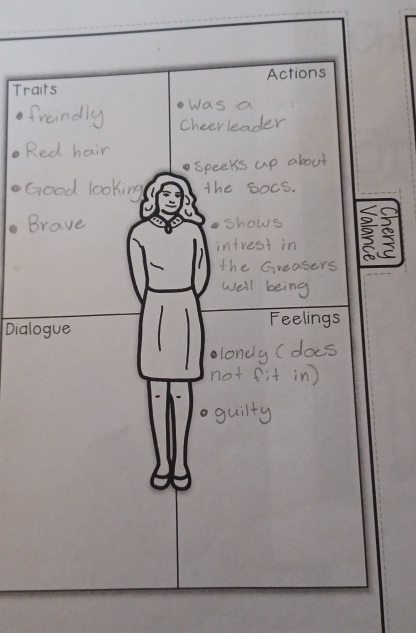 Traits
• freindly
• Red hair
• Good looking
• Brave
Actions
• Was a
Cheerleader
• Speeks up about
the Socs.
• Shows
intrest in
the Greasers
Well being
Cherry
Valance
Dialogue
Feelings
• lonely (does
not fit in)
• guilty